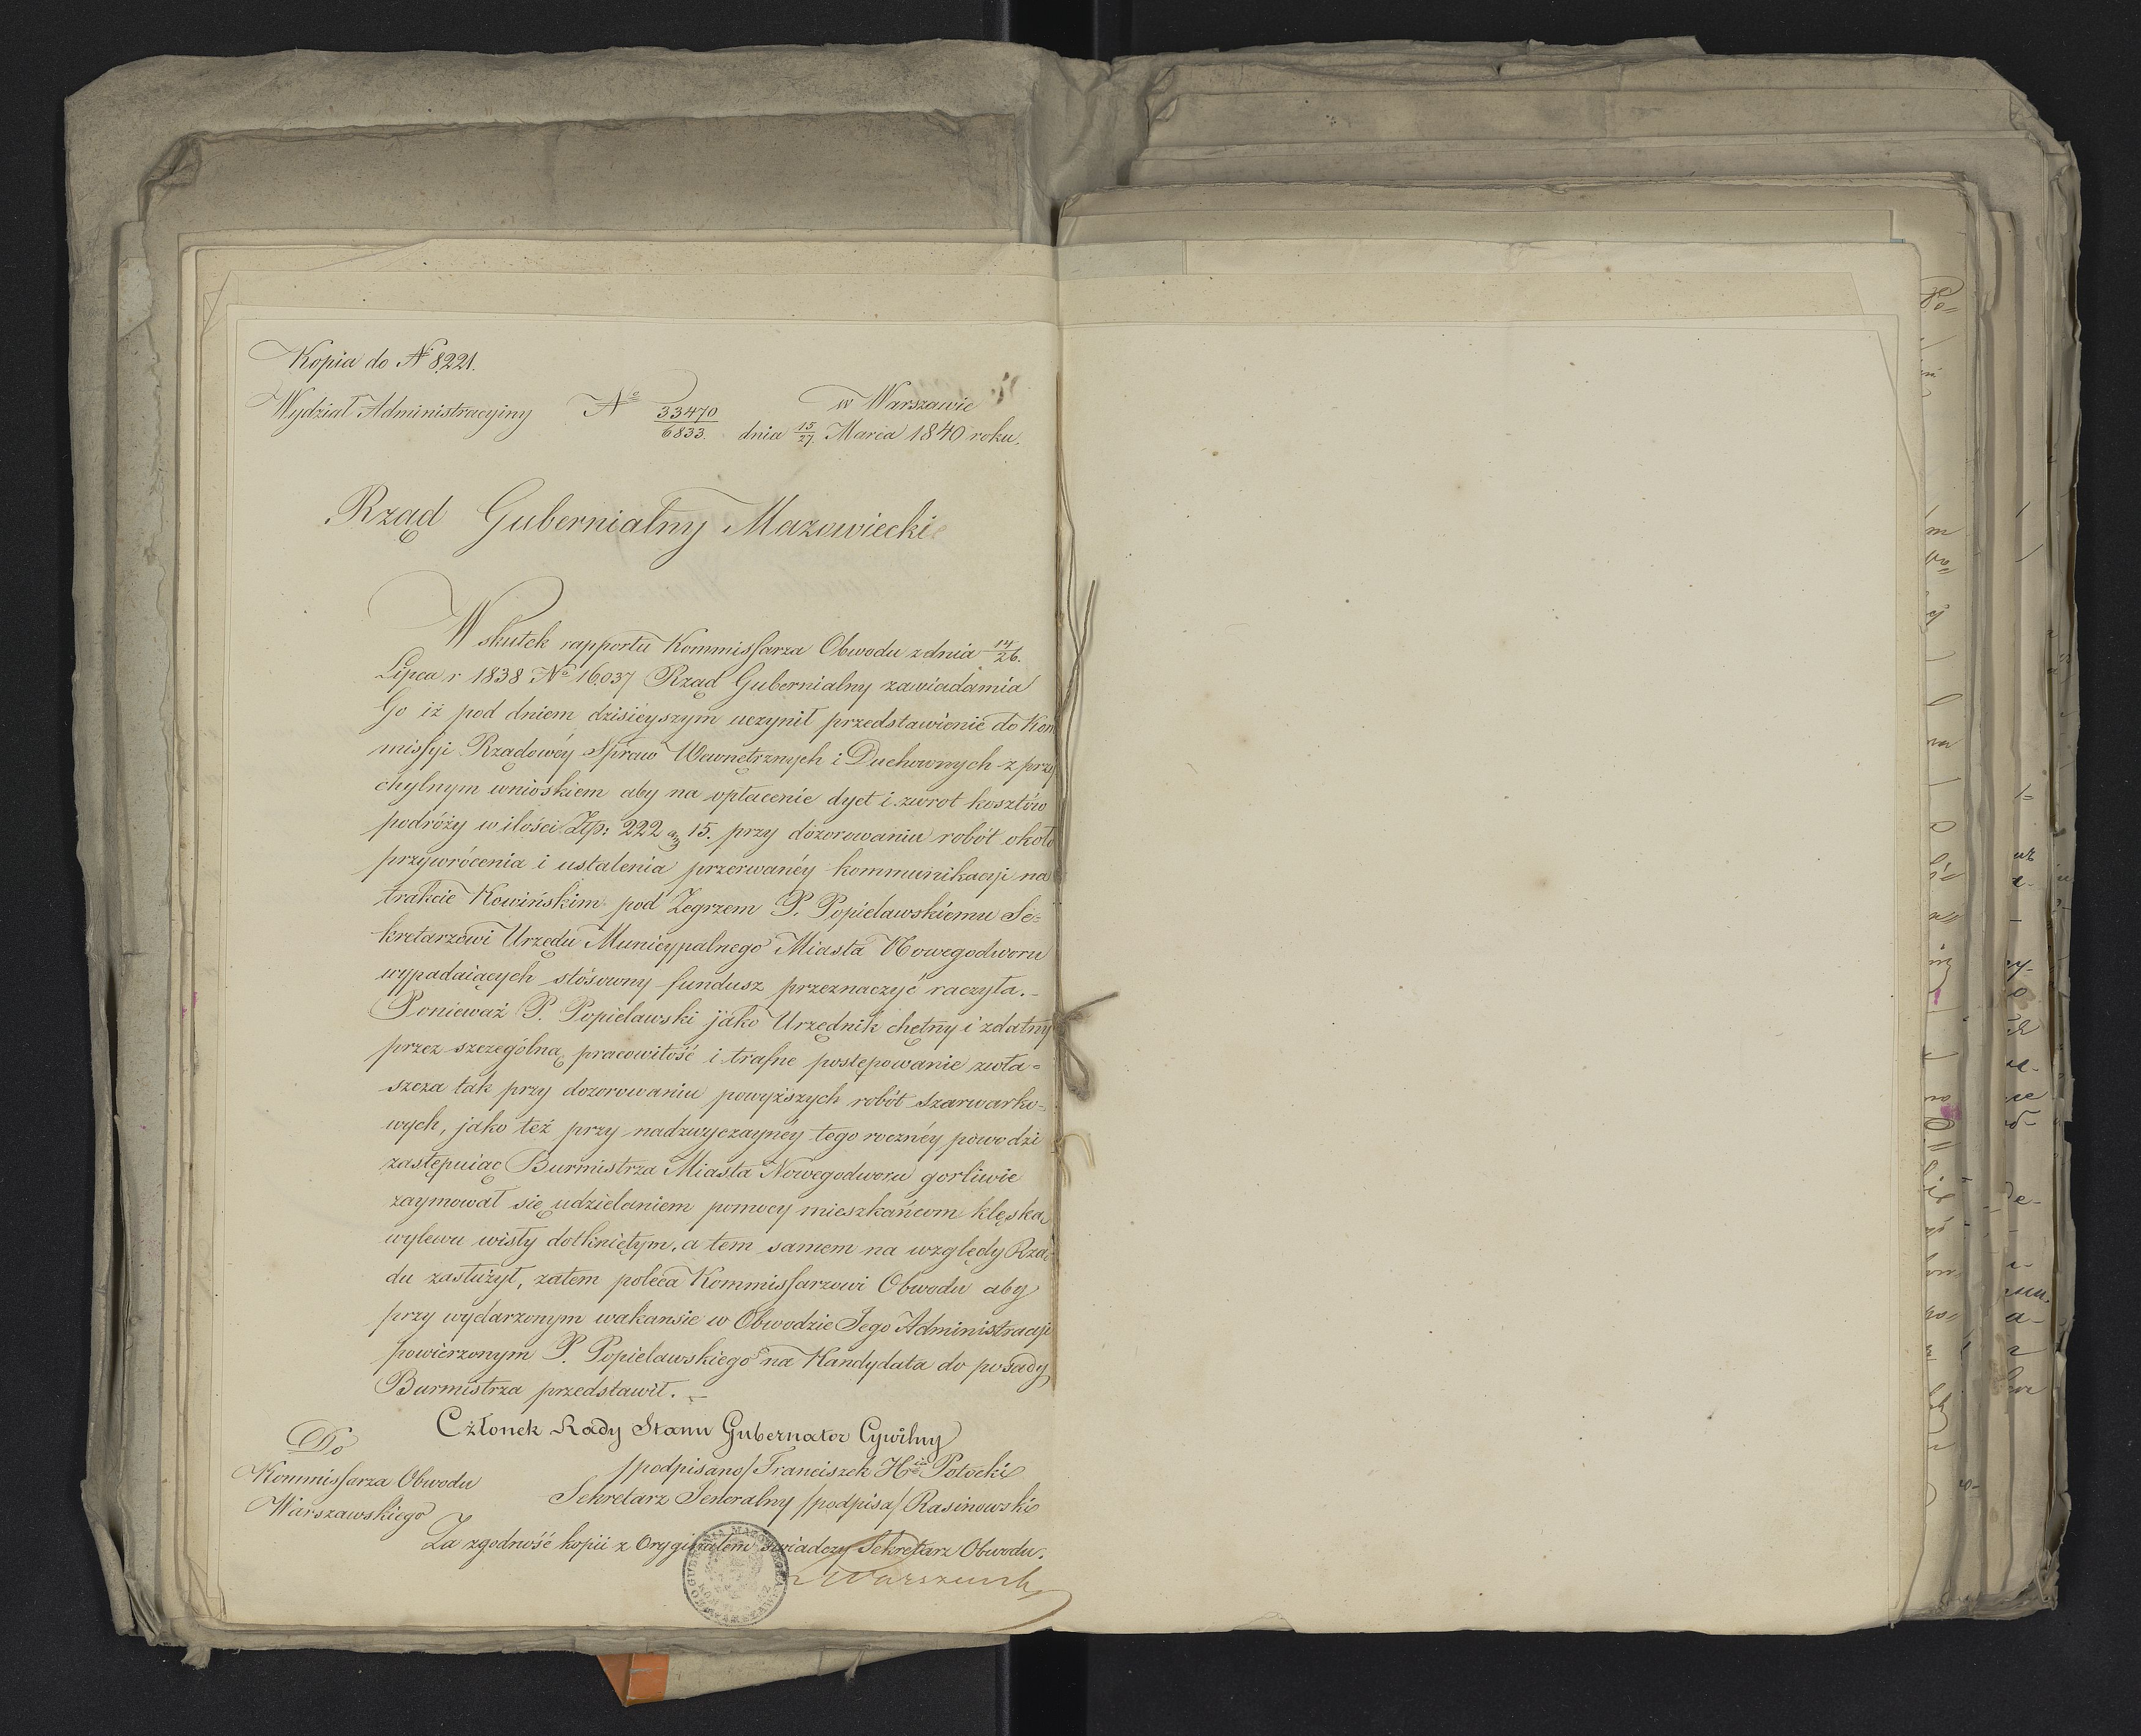 Kopia do N 8221.
Wydział Administracyiny No 33470/6833. w Warszawie
dnia 15/27. Marca 1840 roku.
Rząd Gubernialny Mazowiecki
W skutek rapportu Kommissarza Obwodu z dnia 14/26.
Lipca r 1838 No 16037 Rząd Gubernialny zawiadamia
Go iż pod dniem dzisiéyszym uczynił przedstawienie do Kom
missyi Rządowéy Spraw Wewnętrznych i Duchownych z przy
chylnym wnioskiem aby na opłacenie dyet i zwrot kosztów
podróży w ilości Złp: 222 gr 15. przy dozorowaniu robót około
przywrócenia i ustalenia przerwanéy kommunikacyi na
trakcie Kowińskim pod Zegrzem P. Popielawskiemu Se=
kretarzowi Urzędu Municypalnego Miasta Nowegodworu
wypadaiących stósowny fundusz przeznaczyć raczyła.-
Ponieważ P. Popielawski jako Urzędnik chętny i zdatny
przez szczególną pracowitość i trafne postępowanie zwła=
szcza tak przy dozorowaniu powyższych robót szarwarko=
wych, jako też przy nadzwyczaynéy tego rocznéy powodzi
zastępuiąc Burmistrza Miasta Nowegodworu gorliwie
zaymował się udzielaniem pomocy mieszkańcom klęską
wylewu wisły dotkniętym, a tem samem na względy Rzą=
du zasłużył, zatem poleca Kommissarzowi Obwodu aby
przy wydarzonym wakansie w Obwodzie Jego Administracyi
powierzonym P. Popielawskiego na Kandydata do posady
Burmistrza przedstawił.-
Członek Rady Stanu Gubernator Cywilny
/podpisano/ Franciszek Hr Potocki
Sekretarz Jeneralny /podpisa/ Rasinowski
Do
Kommissarza Obwodu
Warszawskiego
Za zgodność kopii z Oryginałem swiadczy Sekretarz Obwodu.